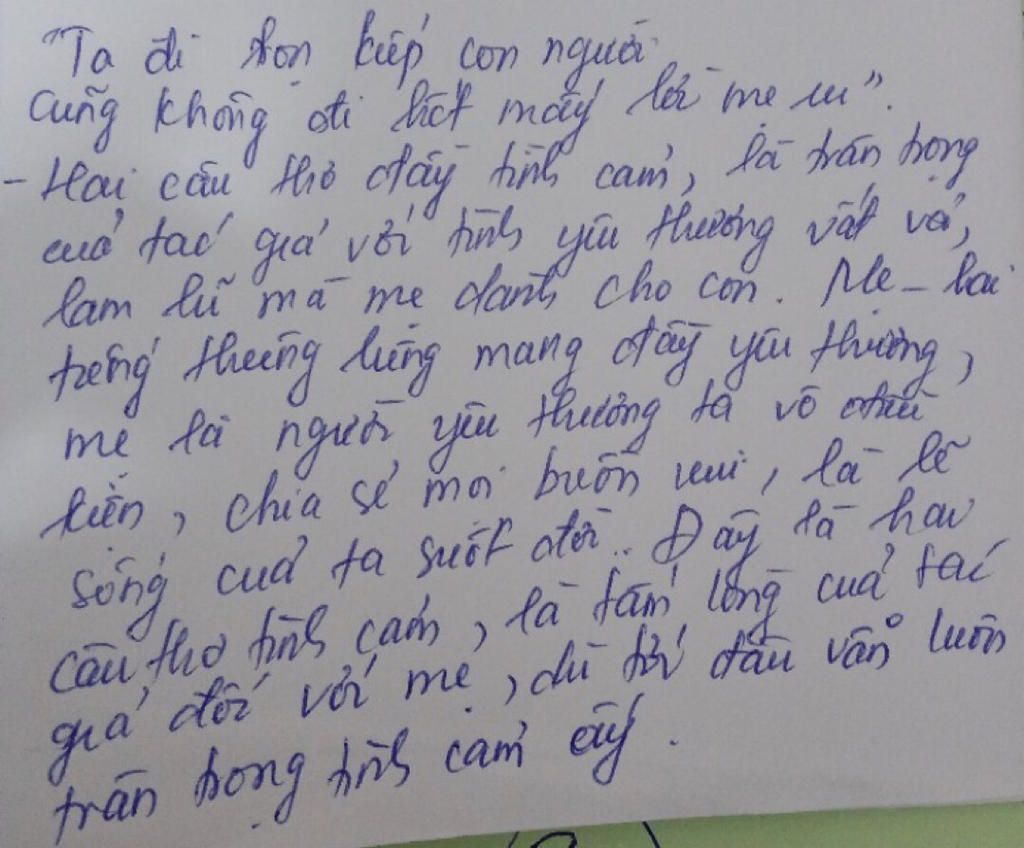 "Ta đi trọn kiếp con người
Cũng không đi hết mấy lời mẹ ru".
- Hai câu thơ đầy tình cảm, là trân trọng
của tác giả với tình yêu thương vất vả,
lam lũ mà mẹ dành cho con. Mẹ - hai
tiếng thiêng liêng mang đầy yêu thương,
mẹ là người yêu thương ta vô điều
kiện, chia sẻ mọi buồn vui, là lẽ
sống của ta suốt đời. Đây là hai
câu thơ tình cảm, là tấm lòng của tác
giả đối với mẹ, dù tới đâu vẫn luôn
trân trọng tình cảm ấy.